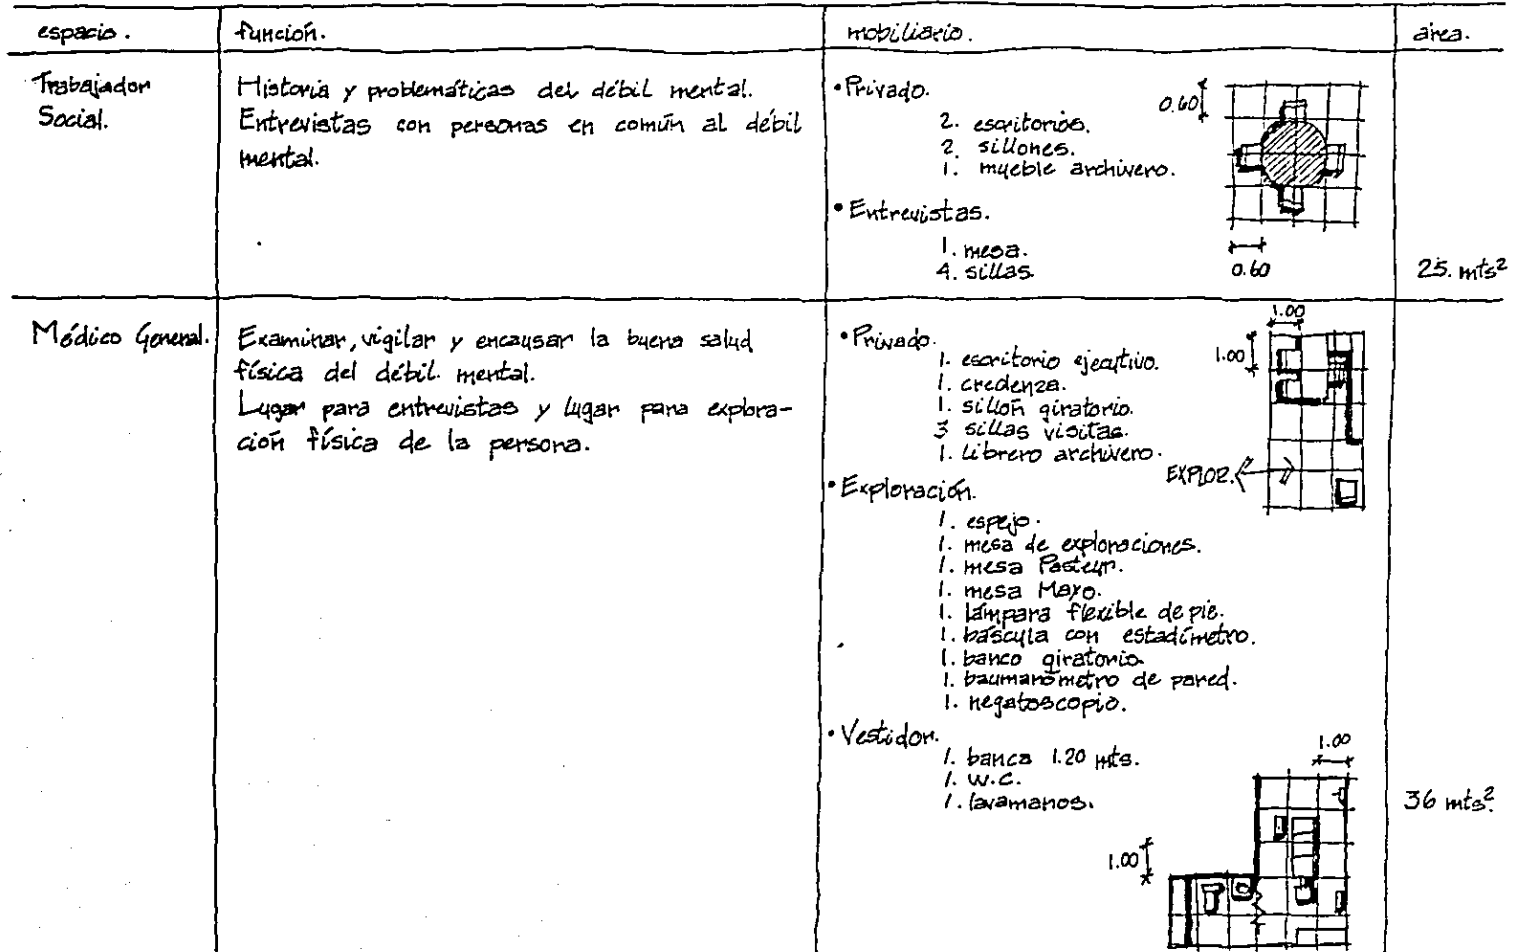 espacio. función. mobiliario. área.
Trabajador
Social.
Historia y problemáticas del débil mental.
Entrevistas con personas en común al débil
mental.
• Privado.
2. escritorios.
2. sillones.
1. mueble archivero.
• Entrevistas.
1. mesa.
4. sillas
0.60
0.60
25. mts²
Médico General.
Examinar, vigilar y encausar la buena salud
física del débil mental.
Lugar para entrevistas y lugar para explora-
ción física de la persona.
• Privado.
1. escritorio ejecutivo.
1. credenza.
1. sillón giratorio.
3 sillas visitas.
1. librero archivero.
1.00
1.00
EXPLOR.
• Exploración.
1. espejo.
1. mesa de exploraciones.
1. mesa Pasteur.
1. mesa Mayo.
1. lámpara flexible de pie.
1. báscula con estadímetro.
1. banco giratorio.
1. baumanómetro de pared.
1. negatoscopio.
• Vestidor.
1. banca 1.20 mts.
1. W.C.
1. lavamanos.
1.00
1.00
36 mts².